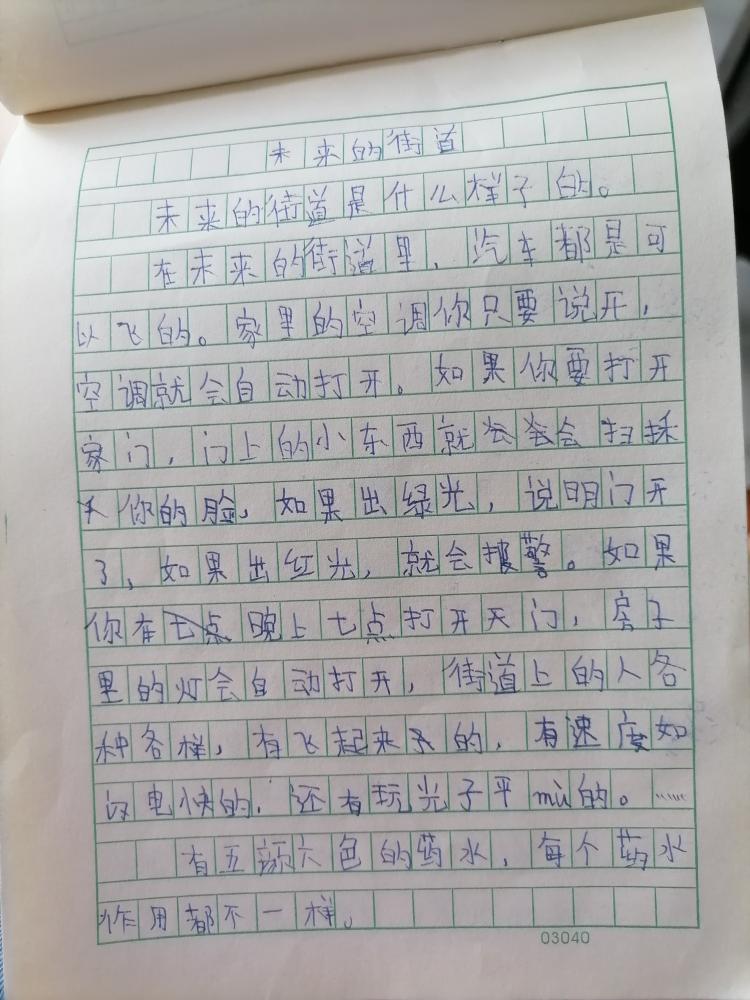 未来的街道
未来的街道是什么样子的。
在未来的街道里，汽车都是可
以飞的。家里的空调你只要说开，
空调就会自动打开。如果你要打开
家门，门上的小东西就会会扫
你的脸，如果出绿光，说明门开
了，如果出红光，就会报警。如果
你在七点晚上七点打开天门，房子
里的灯会自动打开，街道上的人各
种各样，有飞起来的，有速度如
闪电快的，还有玩光子平mù的。……
有五颜六色的药水，每个药水
作用都不一样。
03040